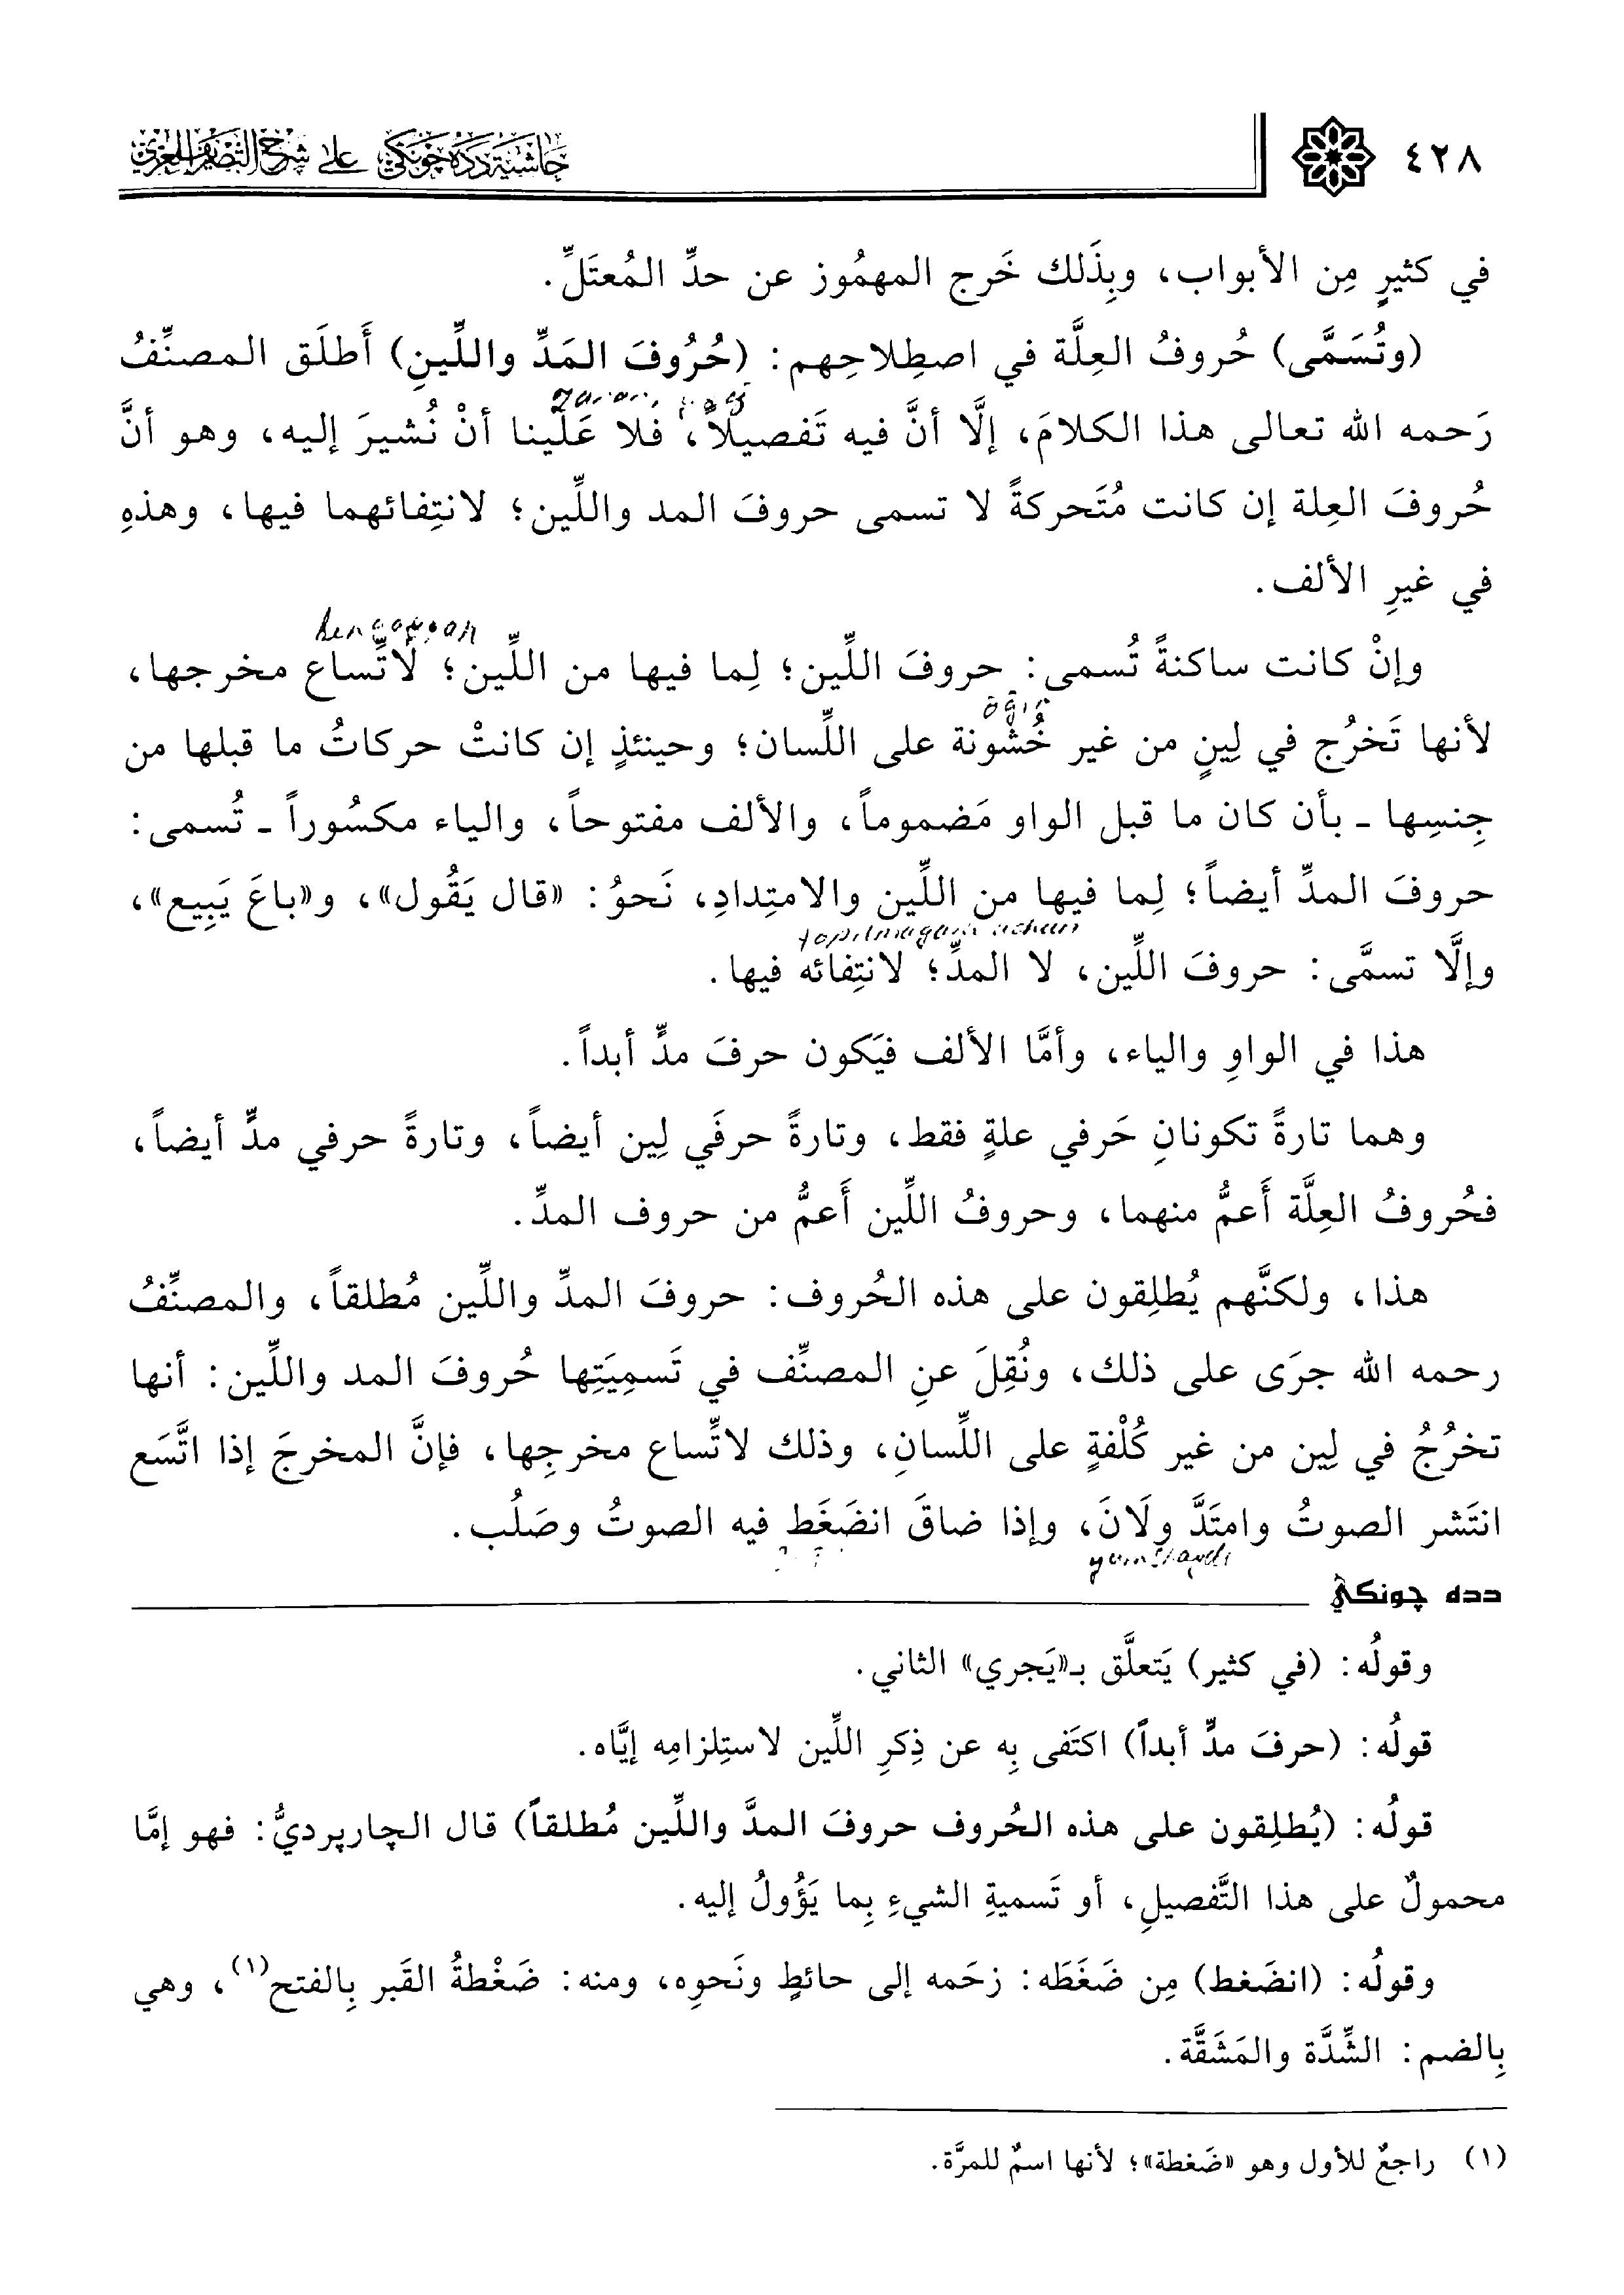 ٤٢٨
حاشية دده جونكي على شرح التصريف العزي
في كثيرٍ مِن الأبواب، وبِذَلك خَرج المهمُوز عن حدِّ المُعتَلِّ.
(وتُسَمَّى) حُروفُ العِلَّة في اصطِلاحِهم: (حُرُوفَ المَدِّ واللِّينِ) أَطلَق المصنِّفُ
رَحمه الله تعالى هذا الكلامَ، إلَّا أنَّ فيه تَفصيلاً، فَلا عَلَينا أنْ نُشيرَ إليه، وهو أنَّ
حُروفَ العِلة إن كانت مُتَحركةً لا تسمى حروفَ المد واللِّين؛ لانتِفائهما فيها، وهذهِ
في غيرِ الألف.
kengaygan
وإنْ كانت ساكنةً تُسمى: حروفَ اللِّين؛ لِما فيها من اللِّين؛ لاتِّساع مخرجها،
لأنها تَخرُج في لِينٍ من غير خُشُونة على اللِّسان؛ وحينئذٍ إن كانتْ حركاتُ ما قبلها من
جِنسِها ـ بأن كان ما قبل الواو مَضموماً، والألف مفتوحاً، والياء مكسُوراً ـ تُسمى:
حروفَ المدِّ أيضاً؛ لِما فيها من اللِّين والامتِدادِ، نَحوُ: «قال يَقُول»، و«باعَ يَبِيع»،
topilmagani uchun
وإلَّا تسمَّى: حروفَ اللِّين، لا المدِّ؛ لانتِفائه فيها.
هذا في الواوِ والياء، وأمَّا الألف فيَكون حرفَ مدٍّ أبداً.
وهما تارةً تكونانِ حَرفي علةٍ فقط، وتارةً حرفَي لِين أيضاً، وتارةً حرفي مدٍّ أيضاً،
فحُروفُ العِلَّة أَعمُّ منهما، وحروفُ اللِّين أَعمُّ من حروف المدِّ.
هذا، ولكنَّهم يُطلِقون على هذه الحُروف: حروفَ المدِّ واللِّين مُطلقاً، والمصنِّفُ
رحمه الله جرَى على ذلك، ونُقِلَ عنِ المصنِّف في تَسمِيَتِها حُروفَ المد واللِّين: أنها
تخرُجُ في لِين من غير كُلْفةٍ على اللِّسانِ، وذلك لاتِّساع مخرجِها، فإنَّ المخرجَ إذا اتَّسَع
انتَشر الصوتُ وامتَدَّ ولَانَ، وإذا ضاقَ انضَغَط فيه الصوتُ وصَلُب.
yumshaydi
دده چونكي
وقولُه: (في كثير) يَتعلَّق بـ«يَجري» الثاني.
قولُه: (حرفَ مدٍّ أبداً) اكتَفى بِه عن ذِكرِ اللِّين لاستِلزامِه إيَّاه.
قولُه: (يُطلِقون على هذه الحُروف حروفَ المدَّ واللِّين مُطلقاً) قال الچارپرديُّ: فهو إمَّا
محمولٌ على هذا التَّفصيلِ، أو تَسميةِ الشيءِ بِما يَؤُولُ إليه.
وقولُه: (انضَغط) مِن ضَغَطَه: زحَمه إلى حائطٍ ونَحوِه، ومنه: ضَغْطةُ القَبر بِالفتح(١)، وهي
بِالضم: الشِّدَّة والمَشَقَّة.
(١) راجعٌ للأول وهو «ضَغطة»؛ لأنها اسمٌ للمرَّة.